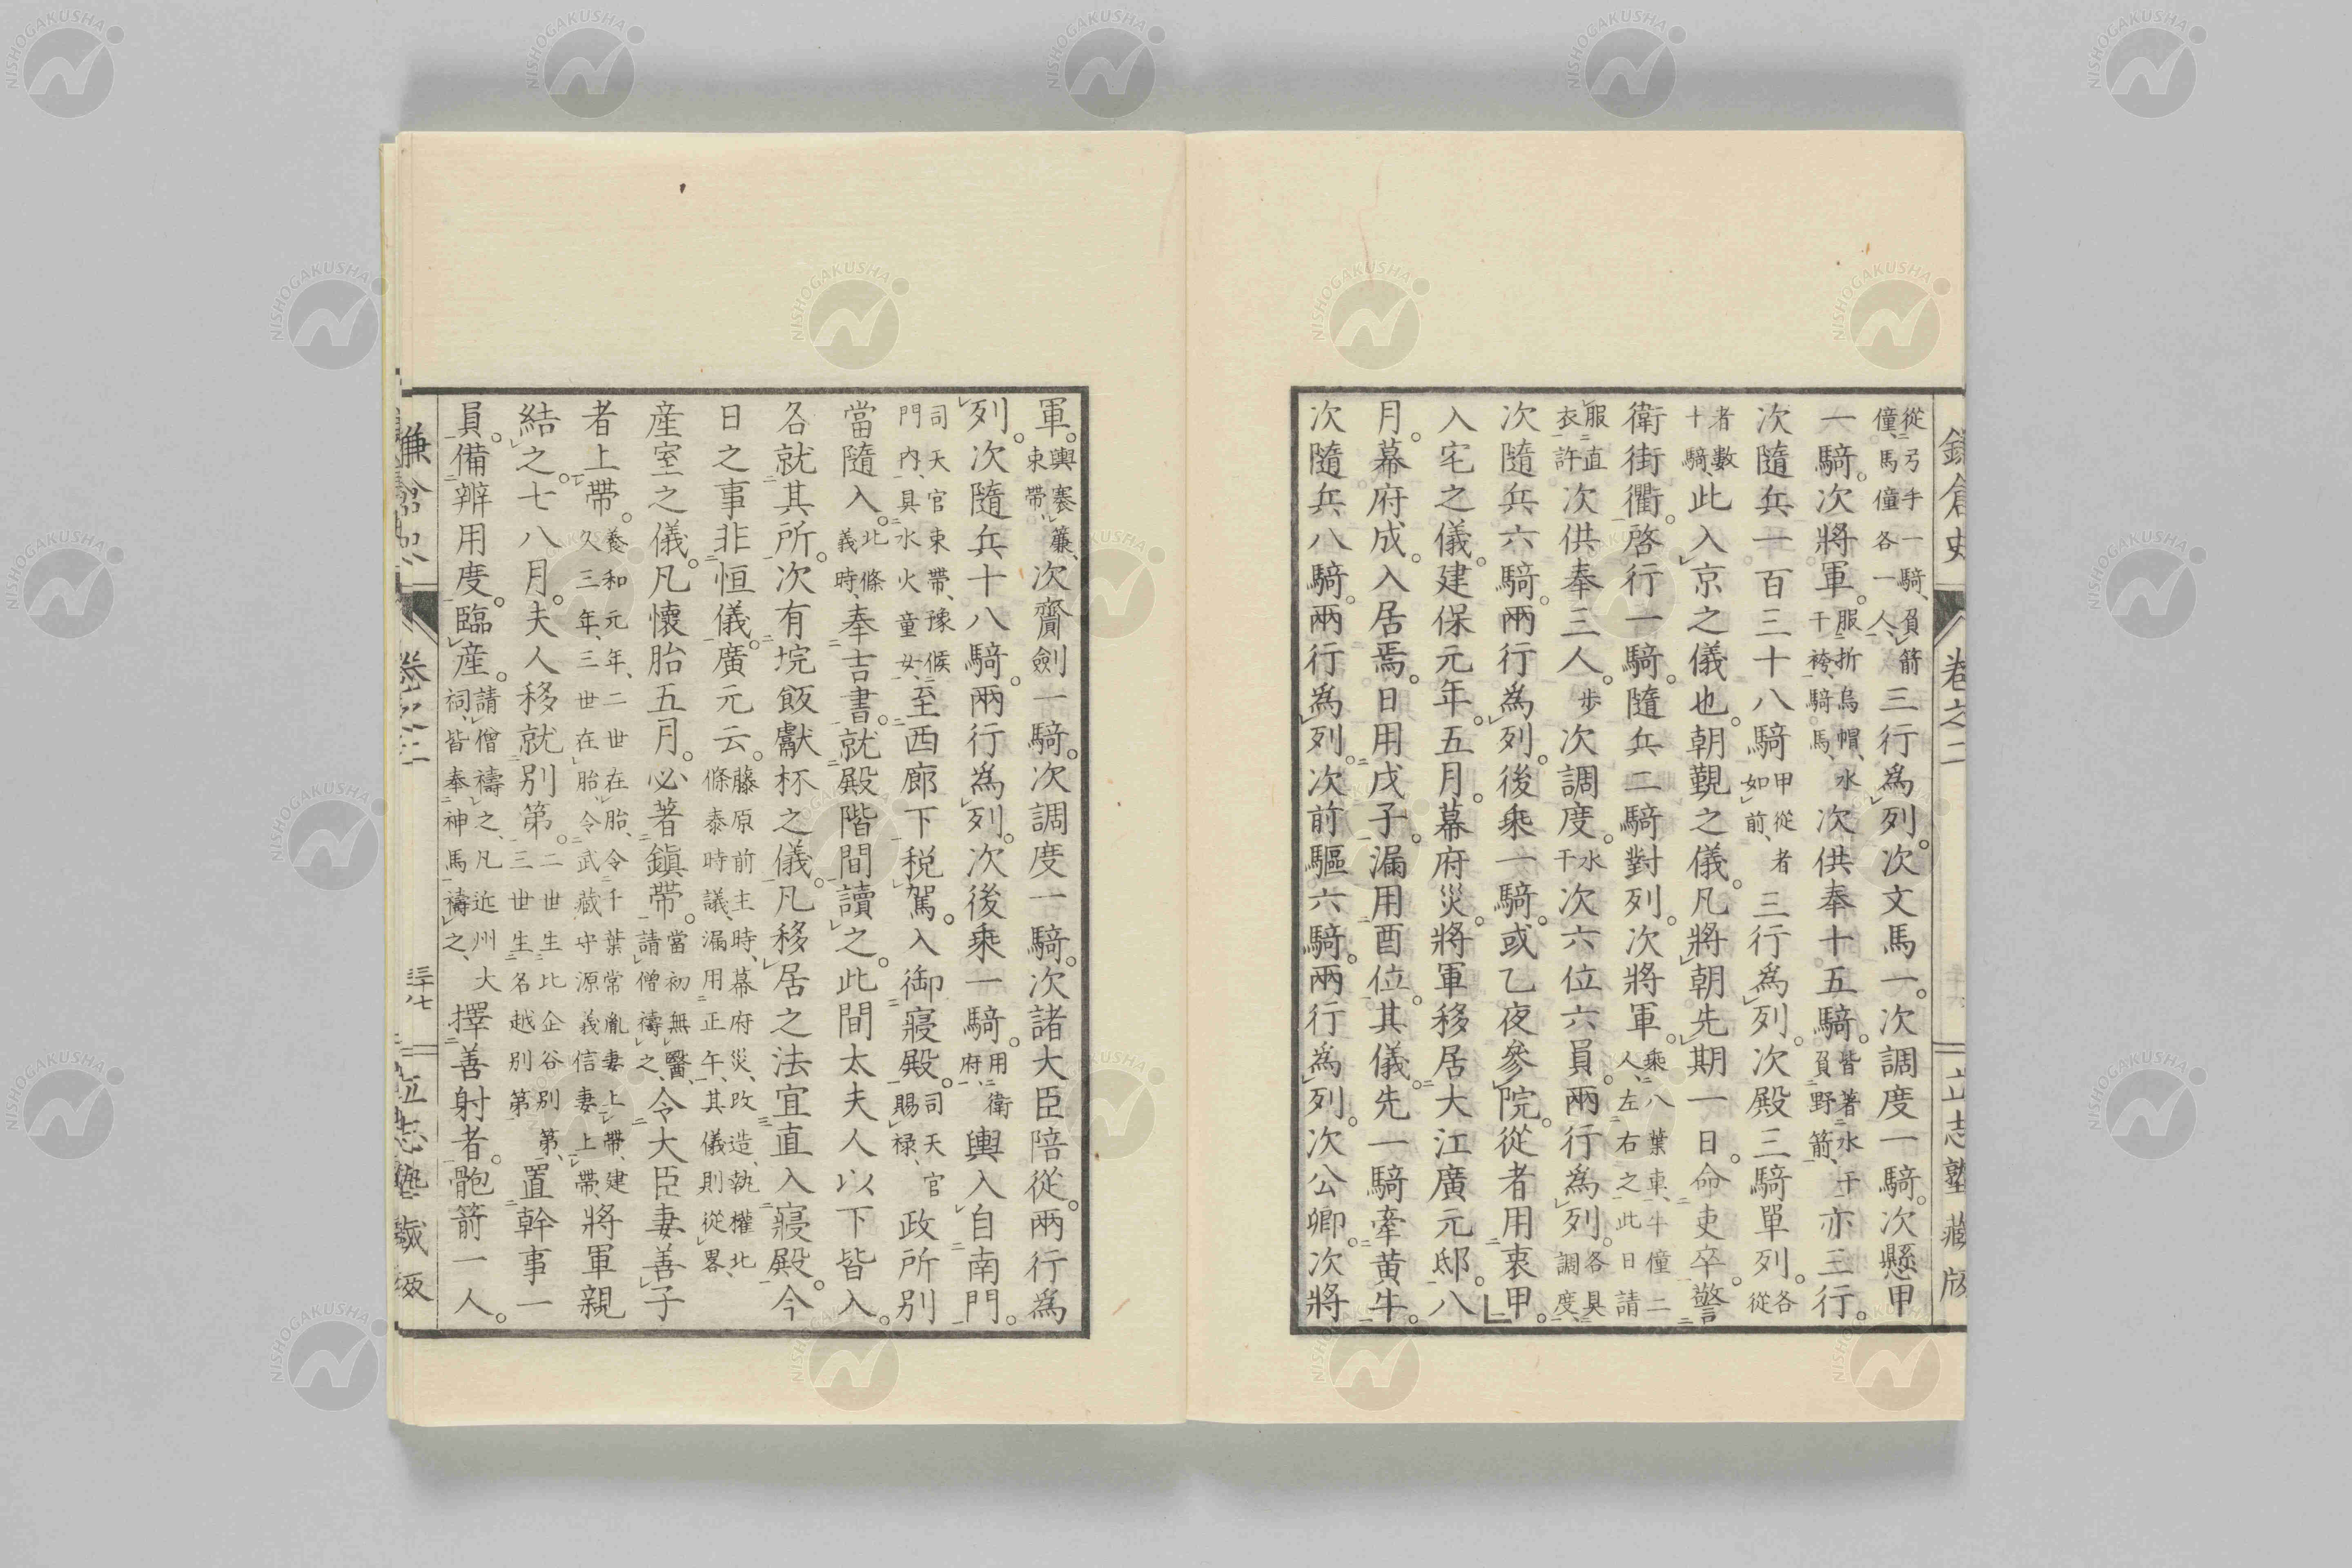 鎌倉史 卷之二 立志塾藏版
從弓手一騎、負箭
僮、馬僮各一人、
三行爲列。次文馬一。次調度一騎。次懸甲
一騎。次將軍。
服折烏帽、水
干袴、騎馬、
次供奉十五騎。
皆著水干
負野箭、
亦三行。
次隨兵一百三十八騎
甲從者
如前、
三行爲列。次殿三騎單列。
各
從
者數
十騎、
此入京之儀也。朝覲之儀。凡將朝先期一日。命吏卒。警
衛街衢。啓行一騎。隨兵二騎對列。次將軍。
乘八葉車、牛僮二
人、左右之、此日請
服直
衣許
次供奉三人。
步
次調度。
水
干
次六位六員。兩行爲列。
各具
調度、
次隨兵六騎。兩行爲列。後乘一騎。或乙夜參院。從者用衷甲。
入宅之儀。建保元年。五月。幕府災。將軍移居大江廣元邸。八
月。幕府成。入居焉。日用戊子。漏用酉位。其儀。先一騎牽黃牛。
次隨兵八騎。兩行爲列。次前驅六騎。兩行爲列。次公卿。次將
軍。
輿褰簾、
束帶、
次齎劍一騎。次調度一騎。次諸大臣陪從。兩行爲
列。次隨兵十八騎。兩行爲列。次後乘一騎。
用衛
府、
輿入自南門。
司天官束帶、豫候
門內、具水火童女、
至西廊下税駕。入御寢殿。
司天官
賜祿、
政所別
當隨入。
北條
義時、
奉吉書。就殿階間讀之。此間太夫人以下皆入。
各就其所。次有垸飯獻杯之儀。凡移居之法宜直入寢殿。今
日之事非恒儀。廣元云。
藤原前主時、幕府災、改造、執權北
條泰時議、漏用正午、其儀則從畧、
産室之儀。凡懷胎五月。必著鎭帶。
當初無醫、
請僧禱之、
令大臣妻善子
者上帶。
養和元年、二世在胎、令千葉常胤妻上帶、建
久三年、三世在胎令武藏守源義信妻上帶、
將軍親
結之。七八月。夫人移就別第。
二世生比企谷別第、
三世生名越別第
置幹事一
員。備辨用度。臨産。
請僧禱之、凡近州大
祠、皆奉神馬禱之、
擇善射者。骲箭一人。
鎌倉史 卷之二 三十七 立志塾藏版